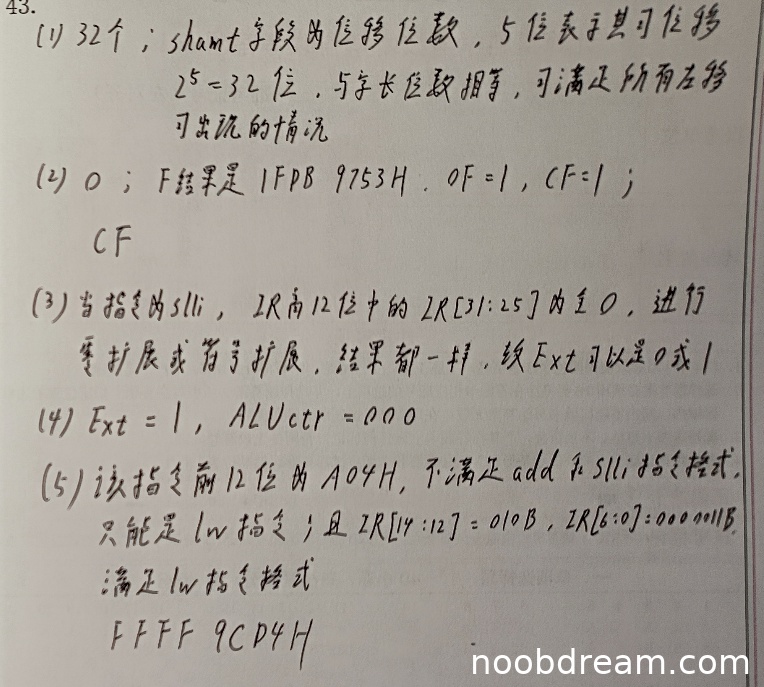 43.
(1) 32个；shamt字段为位移位数，5位表示其可位移
2⁵=32位，与字长位数相等，可满足所有左移
可出现的情况
(2) 0；F结果是1FDB 9753H．OF=1，CF=1；
CF
(3) 当指令为slli，IR高12位中的IR[31:25]为全0，进行
零扩展或符号扩展，结果都一样，故Ext可以是0或1
(4) Ext=1，ALUctr=000
(5) 该指令前12位为A04H，不满足add和slli指令格式，
只能是lw指令；且IR[14:12]=010B，IR[6:0]=0000011B，
满足lw指令格式
FFFF 9CD4H
noobdream.com